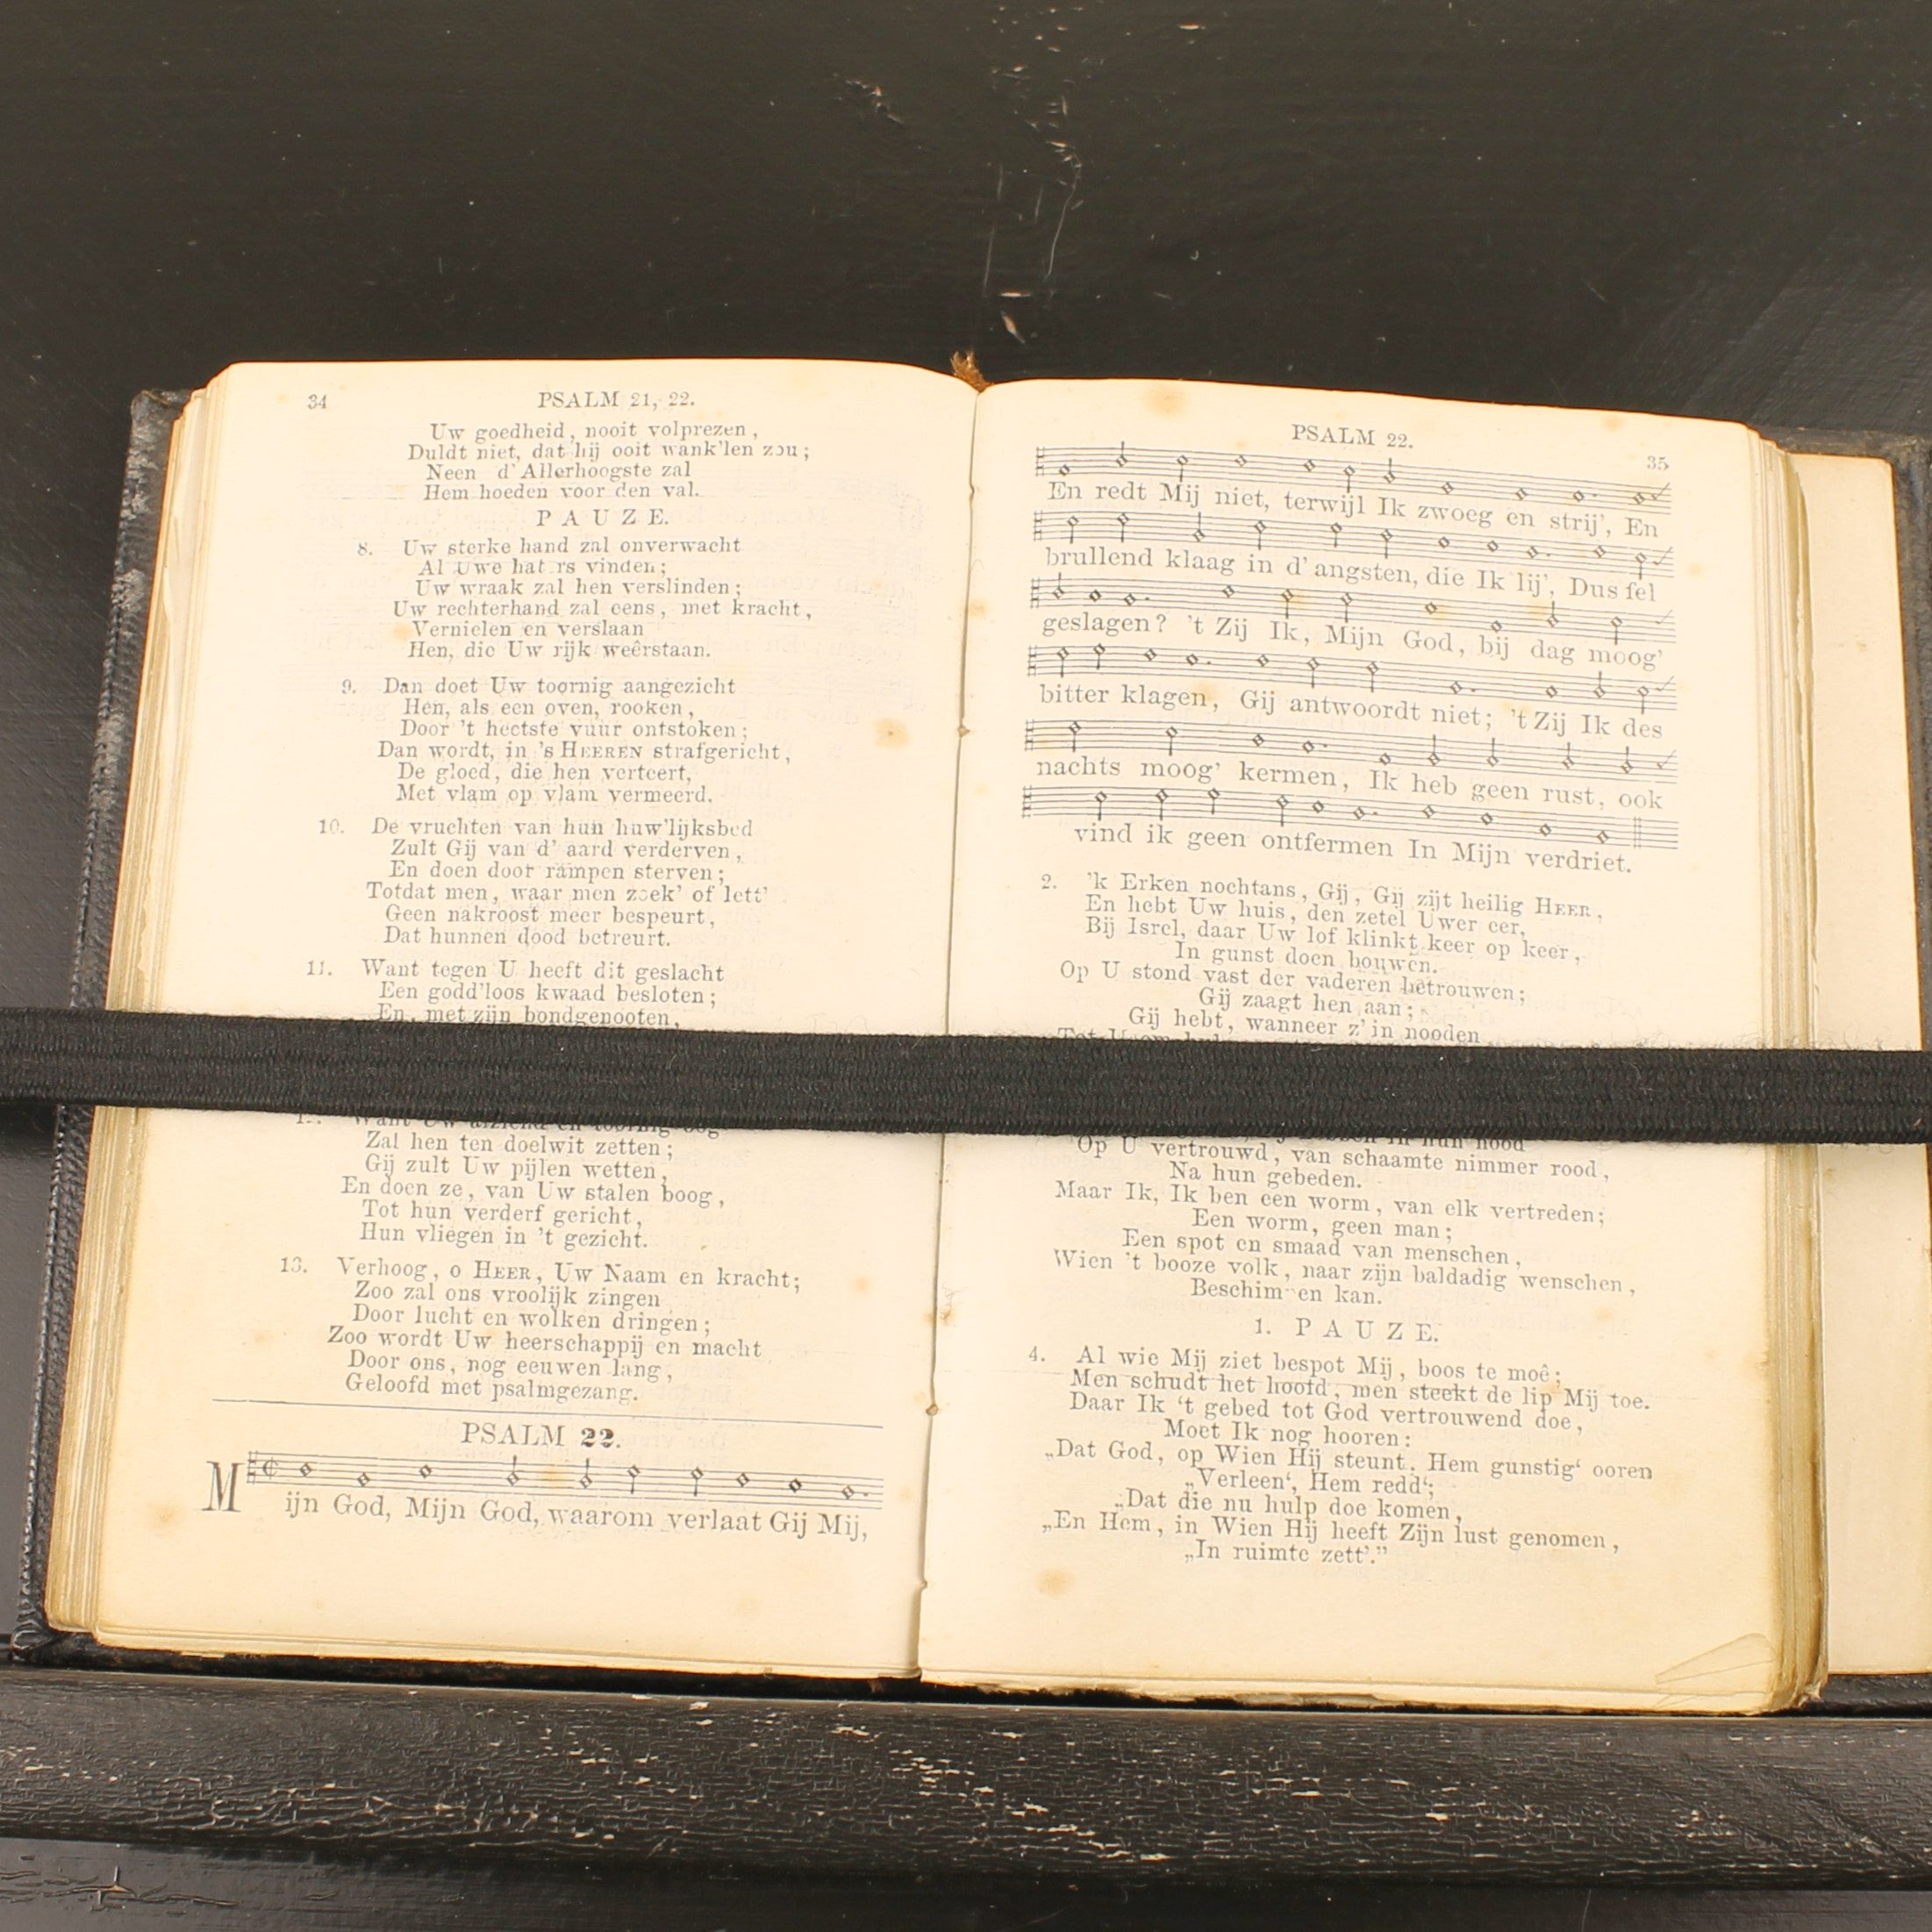 34
PSALM 21, 22.
Uw goedheid, nooit volprezen,
Duldt niet, dat hij ooit wank'len zou;
Neen d'Allerhoogste zal
Hem hoeden voor den val.
PAUZE.
8. Uw sterke hand zal onverwacht
Al Uwe haters vinden;
Uw wraak zal hen verslinden;
Uw rechterhand zal eens, met kracht,
Vernielen en verslaan
Hen, die Uw rijk weêrstaan.
9. Dan doet Uw toornig aangezicht
Hen, als een oven, rooken,
Door 't heetste vuur ontstoken;
Dan wordt, in 's HEEREN strafgericht,
De gloed, die hen verteert,
Met vlam op vlam vermeerd.
10. De vruchten van hun huw'lijksbed
Zult Gij van d' aard verderven,
En doen door rampen sterven;
Totdat men, waar men zoek' of lett'
Geen nakroost meer bespeurt,
Dat hunnen dood betreurt.
11. Want tegen U heeft dit geslacht
Een godd'loos kwaad besloten;
En, met zijn bondgenooten,
Want Uw alziend en toornig oog
Zal hen ten doelwit zetten;
Gij zult Uw pijlen wetten,
En doen ze, van Uw stalen boog,
Tot hun verderf gericht,
Hun vliegen in 't gezicht.
13. Verhoog, o HEER, Uw Naam en kracht;
Zoo zal ons vroolijk zingen
Door lucht en wolken dringen;
Zoo wordt Uw heerschappij en macht
Door ons, nog eeuwen lang,
Geloofd met psalmgezang.
PSALM 22.
Mijn God, Mijn God, waarom verlaat Gij Mij,
PSALM 22.
35
En redt Mij niet, terwijl Ik zwoeg en strij', En
brullend klaag in d'angsten, die Ik lij', Dus fel
geslagen? 't Zij Ik, Mijn God, bij dag moog'
bitter klagen, Gij antwoordt niet; 't Zij Ik des
nachts moog' kermen, Ik heb geen rust, ook
vind ik geen ontfermen In Mijn verdriet.
2. 'k Erken nochtans, Gij, Gij zijt heilig HEER,
En hebt Uw huis, den zetel Uwer eer,
Bij Isrel, daar Uw lof klinkt keer op keer,
In gunst doen bouwen.
Op U stond vast der vaderen betrouwen;
Gij zaagt hen aan;
Gij hebt, wanneer z'in nooden
in hun nood
Op U vertrouwd, van schaamte nimmer rood,
Na hun gebeden.
Maar Ik, Ik ben een worm, van elk vertreden;
Een worm, geen man;
Een spot en smaad van menschen,
Wien 't booze volk, naar zijn baldadig wenschen,
Beschimpen kan.
1. PAUZE.
4. Al wie Mij ziet bespot Mij, boos te moê;
Men schudt het hoofd, men steekt de lip Mij toe.
Daar Ik 't gebed tot God vertrouwend doe,
Moet Ik nog hooren:
„Dat God, op Wien Hij steunt. Hem gunstig' ooren
„Verleen', Hem redd';
„Dat die nu hulp doe komen,
„En Hem, in Wien Hij heeft Zijn lust genomen,
„In ruimte zett'."